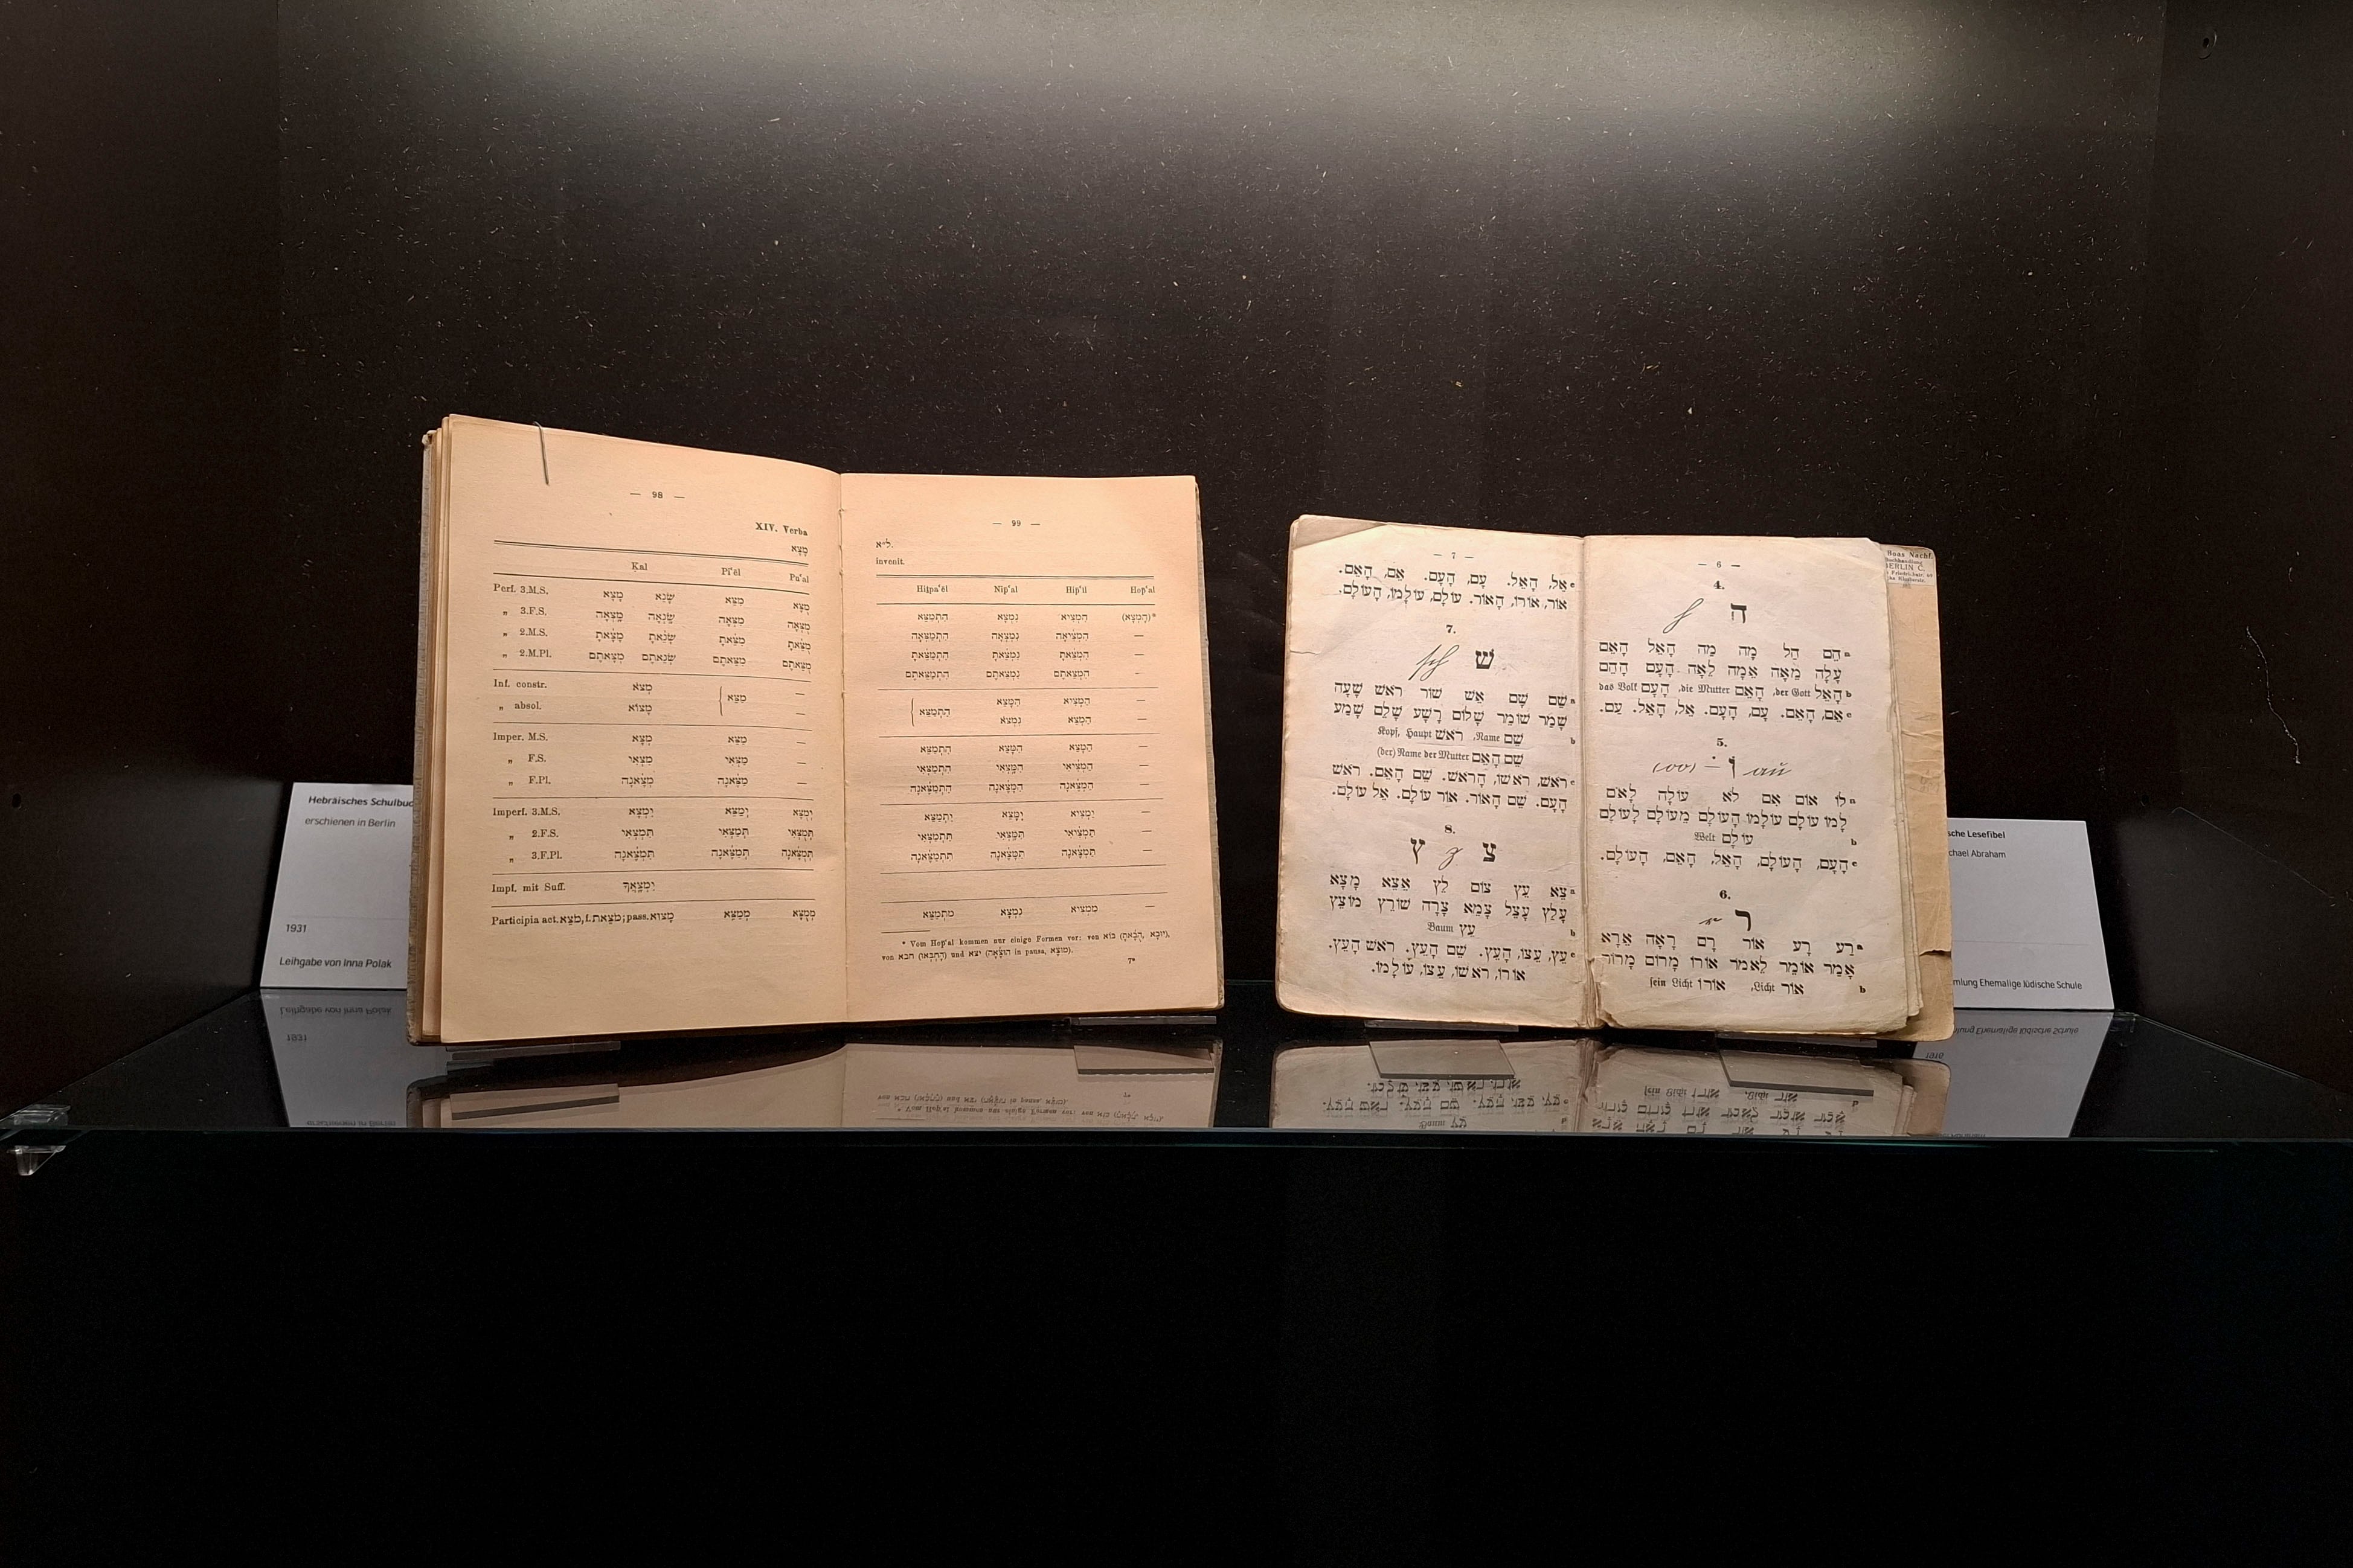 — 98 —
XIV. Verba
מָצָא
Ḳal Piʿēl Puʿal
Perf. 3.M.S. מָצָא שָׂנֵא מִצֵּא מֻצָּא
„ 3.F.S. מָצְאָה שָׂנְאָה מִצְּאָה מֻצְּאָה
„ 2.M.S. מָצָאתָ שָׂנֵאתָ מִצֵּאתָ מֻצֵּאתָ
„ 2.M.Pl. מְצָאתֶם שְׂנֵאתֶם מִצֵּאתֶם מֻצֵּאתֶם
Inf. constr. מְצֹא מַצֵּא —
„ absol. מָצוֹא —
Imper. M.S. מְצָא מַצֵּא —
„ F.S. מִצְאִי מַצְּאִי —
„ F.Pl. מְצֶאנָה מַצֶּאנָה —
Imperf. 3.M.S. יִמְצָא יְמַצֵּא יְמֻצָּא
„ 2.F.S. תִּמְצְאִי תְּמַצְּאִי תְּמֻצְּאִי
„ 3.F.Pl. תִּמְצֶאנָה תְּמַצֶּאנָה תְּמֻצֶּאנָה
Impf. mit Suff. יִמְצָאֲךָ
Participia act. מֹצֵא, f. מֹצֵאת; pass. מָצוּא מְמַצֵּא מְמֻצָּא
— 99 —
ל״א.
invenit.
Hiṭpaʿēl Nip̄ʿal Hip̄ʿil Hop̄ʿal
הִתְמַצֵּא נִמְצָא הִמְצִיא (הֻמְצָא)*
הִתְמַצְּאָה נִמְצְאָה הִמְצִיאָה —
הִתְמַצֵּאתָ נִמְצֵאתָ הִמְצֵאתָ —
הִתְמַצֵּאתֶם נִמְצֵאתֶם הִמְצֵאתֶם —
הִתְמַצֵּא הִמָּצֵא הַמְצִיא —
נִמְצֹא הַמְצֵא —
הִתְמַצֵּא הִמָּצֵא הַמְצֵא —
הִתְמַצְּאִי הִמָּצְאִי הַמְצִיאִי —
הִתְמַצֶּאנָה הִמָּצֶאנָה הַמְצֶאנָה —
יִתְמַצֵּא יִמָּצֵא יַמְצִיא —
תִּתְמַצְּאִי תִּמָּצְאִי תַּמְצִיאִי —
תִּתְמַצֶּאנָה תִּמָּצֶאנָה תַּמְצֶאנָה —
מִתְמַצֵּא נִמְצָא מַמְצִיא —
* Vom Hop̄ʿal kommen nur einige Formen vor: von בוֹא (יוּבָא, הֻבָאתָ),
von חבא (הָחְבְּאוּ) und יצא (הוּצָאָה in pausa, מוּצָא).
7*
— 7 —
c אֵל, הָאֵל. עַם, הָעָם. אֵם, הָאֵם.
אוֹר, אוֹרוֹ, הָאוֹר. עוֹלָם, עוֹלָמוֹ, הָעוֹלָם.
7.
שׁ sch
a שֵׁם שָׁם אֵשׁ שׁוֹר רֹאשׁ שָׁעָה
שָׁמַר שׁוֹמֵר שָׁלוֹם רָשָׁע שָׁלֵם שָׁמַע
b שֵׁם Name, רֹאשׁ Kopf, Haupt
שֵׁם הָאֵם (der) Name der Mutter
c רֹאשׁ, רֹאשׁוֹ, הָרֹאשׁ. שֵׁם הָאֵם. רֹאשׁ
הָעָם. שֵׁם הָאוֹר. אוֹר עוֹלָם. אֵל עוֹלָם.
8.
צ z ץ
a צֵא עֵץ צוֹם לֵץ אֵצֵא מָצָא
עָלַץ עָצֵל צָמֵא צָרָה שׁוֹרֵץ מוֹצֵץ
b עֵץ Baum
c עֵץ, עֵצוֹ, הָעֵץ. שֵׁם הָעֵץ. רֹאשׁ הָעֵץ.
אוֹרוֹ, רֹאשׁוֹ, עֵצוֹ, עוֹלָמוֹ.
— 6 —
4.
ה h
a הֵם הַל מָה מַה הָאֵל הָאֵם
עָלָה מֵאָה אַמָּה לֵאָה הָעָם הָהֵם
b הָאֵל der Gott, הָאֵם die Mutter, הָעָם das Volk
c אֵם, הָאֵם. עָם, הָעָם. אֵל, הָאֵל. עַם.
5.
וֹ — au (oo)
a לוֹ אוֹם אִם לֹא עוֹלָה לְאֹם
לָמוֹ עוֹלָם עוֹלָמוֹ הָעוֹלָם מֵעוֹלָם לָעוֹלָם
b עוֹלָם Welt
c הָעָם, הָעוֹלָם, הָאֵל, הָאֵם, הָעוֹלָם.
6.
ר r
a רַע רָע אוֹר רָם רָאָה אֵרָא
אָמַר אוֹמֵר לֵאמֹר אוֹרוֹ מָרוֹם מָרוֹר
b אוֹר Licht, אוֹרוֹ sein Licht
Boas Nachf.
Buchhandlung
BERLIN C.
Friedrichstr. 69
Hebräisches Schulbuc
erschienen in Berlin
1931
Leihgabe von Inna Polak
sche Lesefibel
chael Abraham
mlung Ehemalige Jüdische Schule